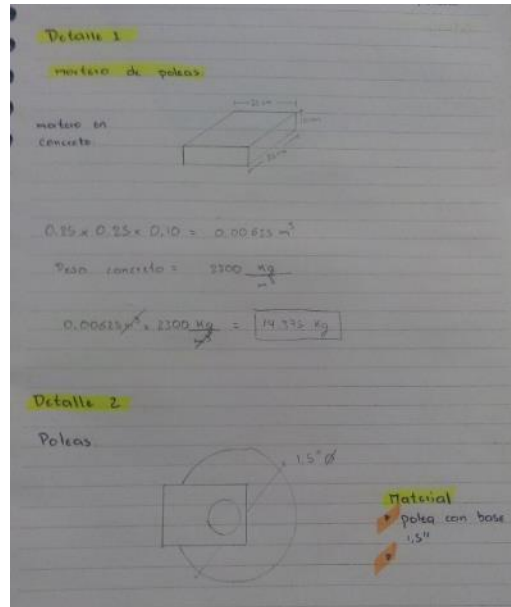 Detalle 1
mortero de poleas
mortero en
concreto
0.25 x 0.25 x 0.10 = 0.00625 m³
Peso concreto = 2300 Kg/m³
0.00625 m³ x 2300 Kg/m³ = 14.375 Kg
Detalle 2
Poleas
1.5" Ø
Material
polea con base
1,5"